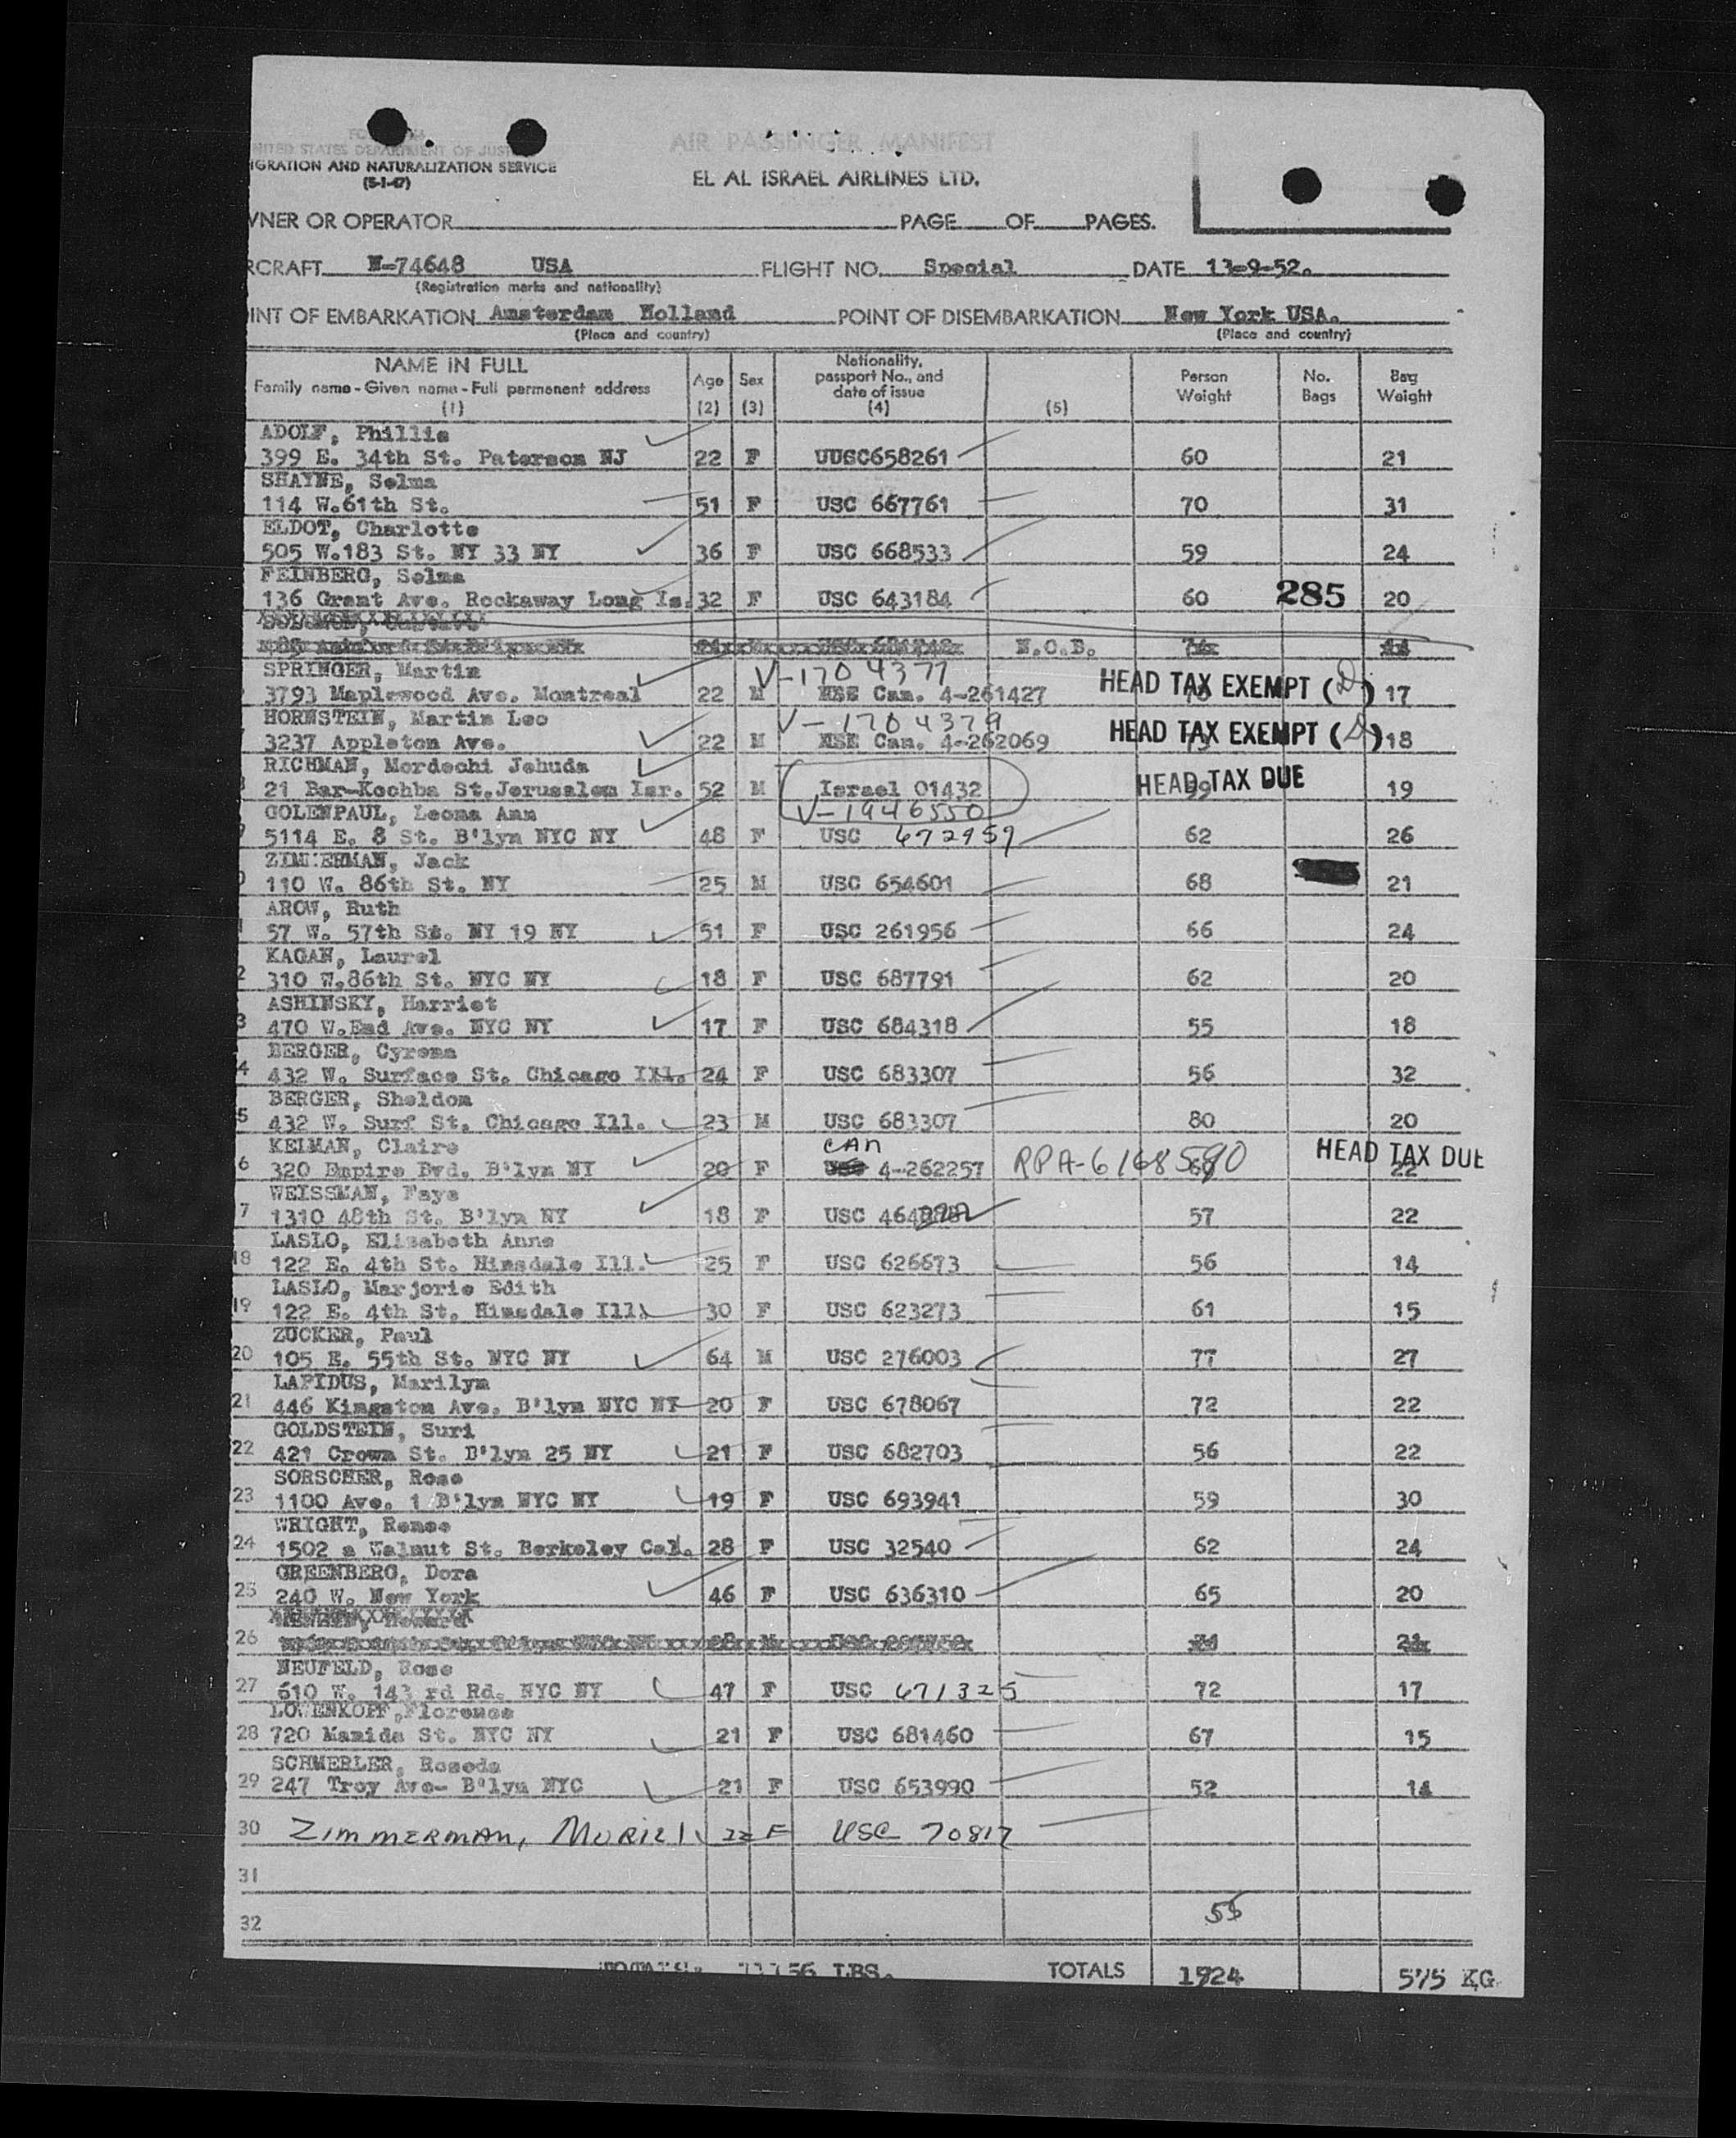 UNITED STATES DEPARTMENT OF JUST
IGRATION AND NATURALIZATION SERVICE
(5-1-47)
AIR PASSENGER MANIFEST
EL AL ISRAEL AIRLINES LTD.
WNER OR OPERATOR PAGE OF PAGES.
RCRAFT N-74648 USA FLIGHT NO. Special DATE 13-9-52.
(Registration marks and nationality)
INT OF EMBARKATION Amsterdam Holland POINT OF DISEMBARKATION New York USA.
(Place and country) (Place and country)
NAME IN FULL
Family name - Given name - Full permanent address
(1)
Age
(2)
Sex
(3)
Nationality,
passport No., and
date of issue
(4)
(5)
Person
Weight
No.
Bags
Bag
Weight
ADOLF, Phillis
399 E. 34th St. Paterson NJ 22 F UUSC658261 60 21
SHAYNE, Selma
114 W.61th St. 51 F USC 667761 70 31
ELDOT, Charlotte
505 W.183 St. NY 33 NY 36 F USC 668533 59 24
FEINBERG, Selma
136 Grant Ave. Rockaway Long Is. 32 F USC 643184 60 285 20
N.O.B.
SPRINGER, Martin V-1704377
3793 Maplewood Ave. Montreal 22 M Can. 4-261427 HEAD TAX EXEMPT (D) 17
HORNSTEIN, Martin Leo V-1704379
3237 Appleton Ave. 22 M Can. 4-262069 HEAD TAX EXEMPT (D) 18
RICHMAN, Mordechi Jehuda
21 Bar-Kochba St.Jerusalem Isr. 52 M Israel 01432 HEAD TAX DUE 19
GOLENPAUL, Leona Ann V-1946550
5114 E. 8 St. B'lyn NYC NY 48 F USC 672959 62 26
ZIMMERMAN, Jack
110 W. 86th St. NY 25 M USC 654601 68 21
AROW, Ruth
57 W. 57th St. NY 19 NY 51 F USC 261956 66 24
KAGAN, Laurel
2 310 W.86th St. NYC NY 18 F USC 687791 62 20
ASHINSKY, Harriet
3 470 W.End Ave. NYC NY 17 F USC 684318 55 18
BERGER, Cyrena
4 432 W. Surface St. Chicago Ill. 24 F USC 683307 56 32
BERGER, Sheldon
5 432 W. Surf St. Chicago Ill. 23 M USC 683307 80 20
KELMAN, Claire CAN
6 320 Empire Bvd. B'lyn NY 20 F 4-262257 RPA-6168590 HEAD TAX DUE 22
WEISSMAN, Faye
7 1310 48th St. B'lyn NY 18 F USC 57 22
LASLO, Elisabeth Anne
18 122 E. 4th St. Hinsdale Ill. 25 F USC 626673 56 14
LASLO, Marjorie Edith
19 122 E. 4th St. Hinsdale Ill. 30 F USC 623273 61 15
ZUCKER, Paul
20 105 E. 55th St. NYC NY 64 M USC 276003 77 27
LAPIDUS, Marilyn
21 446 Kingston Ave. B'lyn NYC NY 20 F USC 678067 72 22
GOLDSTEIN, Suri
22 421 Crown St. B'lyn 25 NY 21 F USC 682703 56 22
SORSCHER, Rose
23 1100 Ave. 1 B'lyn NYC NY 19 F USC 693941 59 30
WRIGHT, Renee
24 1502 a Walnut St. Berkeley Cal. 28 F USC 32540 62 24
GREENBERG, Dora
25 240 W. New York 46 F USC 636310 65 20
26
NEUFELD, Rose
27 610 W. 143 rd Rd. NYC NY 47 F USC 671325 72 17
LOWENKOPF,Florence
28 720 Manida St. NYC NY 21 F USC 681460 67 15
SCHMERLER, Roseda
29 247 Troy Ave- B'lyn NYC 21 F USC 653990 52 14
30 ZIMMERMAN, MURIEL 22 F USC 70817
31
32 55
LBS. TOTALS 1924 575 KG